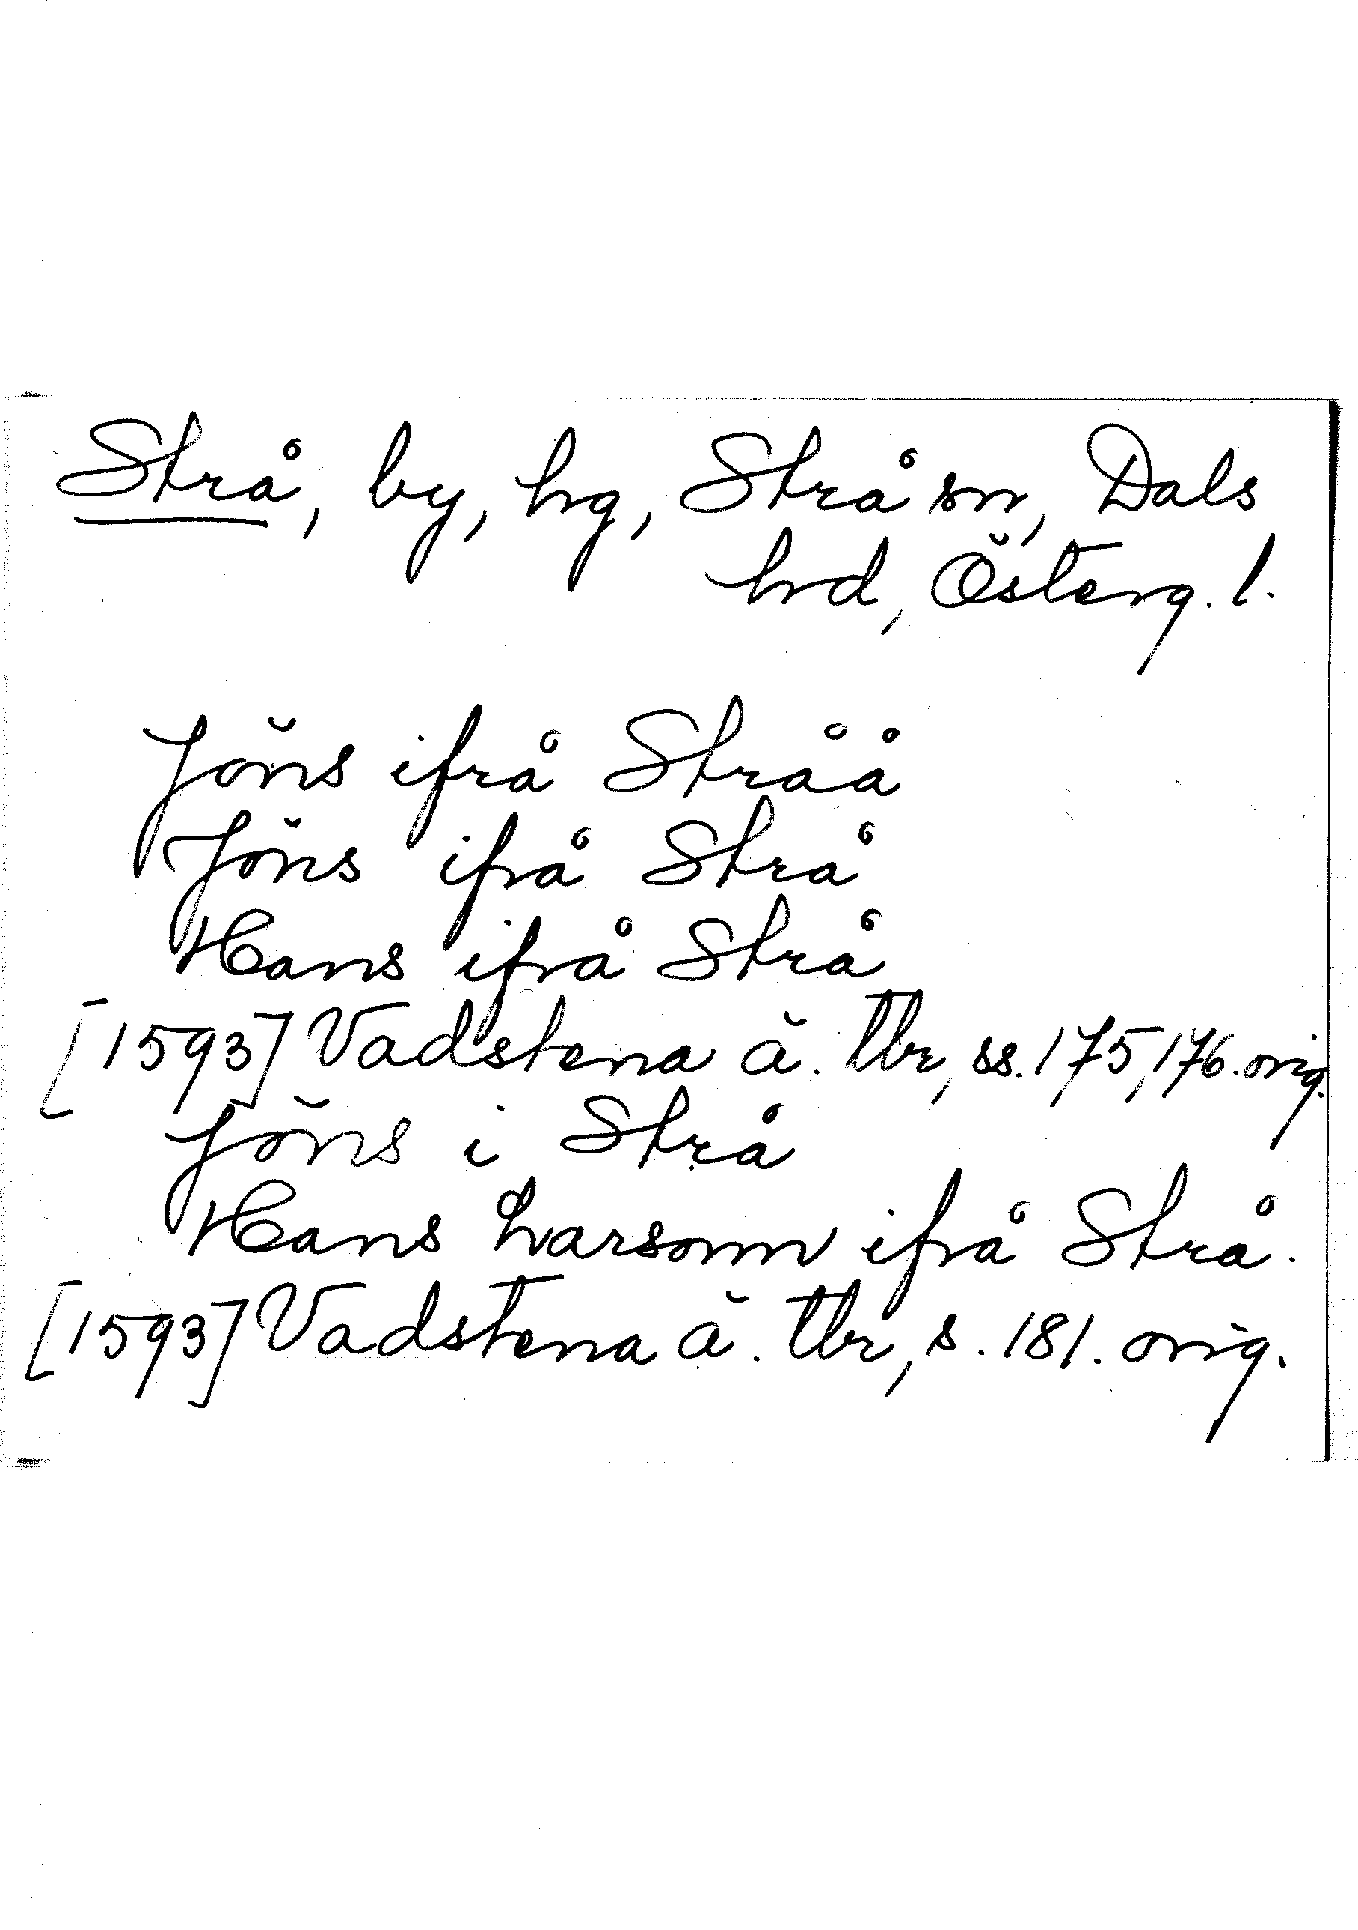 Strå, by, hg, Strå sn, Dals
hd, Österg. l.
Jöns ifrå Stråå
Jöns ifrå Strå
Hans ifrå Strå
[1593] Vadstena ä. tbr, ss. 175, 176. orig.
Jöns i Strå
Hans Larsonn ifrå Strå.
[1593] Vadstena ä. tbr, s. 181. orig.